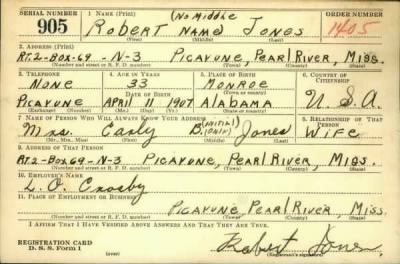 SERIAL NUMBER 1. NAME (Print) ORDER NUMBER
905 Robert (No Middle Name) Jones 1405
(First) (Middle) (Last)
2. ADDRESS (Print)
RT. 2-Box-69-N-3 Picayune, Pearl River, Miss.
(Number and street or R. F. D. number) (Town) (County) (State)
3. TELEPHONE 4. AGE IN YEARS 5. PLACE OF BIRTH 6. COUNTRY OF CITIZENSHIP
None 33 Monroe
DATE OF BIRTH (Town or county)
Picayune April 11 1907 Alabama U.S.A.
(Exchange) (Number) (Mo.) (Day) (Yr.) (State or country)
7. NAME OF PERSON WHO WILL ALWAYS KNOW YOUR ADDRESS 8. RELATIONSHIP OF THAT PERSON
Mrs. B. (Initial Only) Jones Wife
(Mr., Mrs., Miss) (First) (Middle) (Last)
9. ADDRESS OF THAT PERSON
RT. 2-Box 69-N-3 Picayune, Pearl River, Miss.
(Number and street or R. F. D. number) (Town) (County) (State)
10. EMPLOYER'S NAME
L. O. Crosby
11. PLACE OF EMPLOYMENT OR BUSINESS
Picayune, Pearl River, Miss.
(Number and street or R. F. D. number) (Town) (County) (State)
I AFFIRM THAT I HAVE VERIFIED ABOVE ANSWERS AND THAT THEY ARE TRUE.
REGISTRATION CARD
D. S. S. Form 1
Robert Jones
(Registrant's signature)